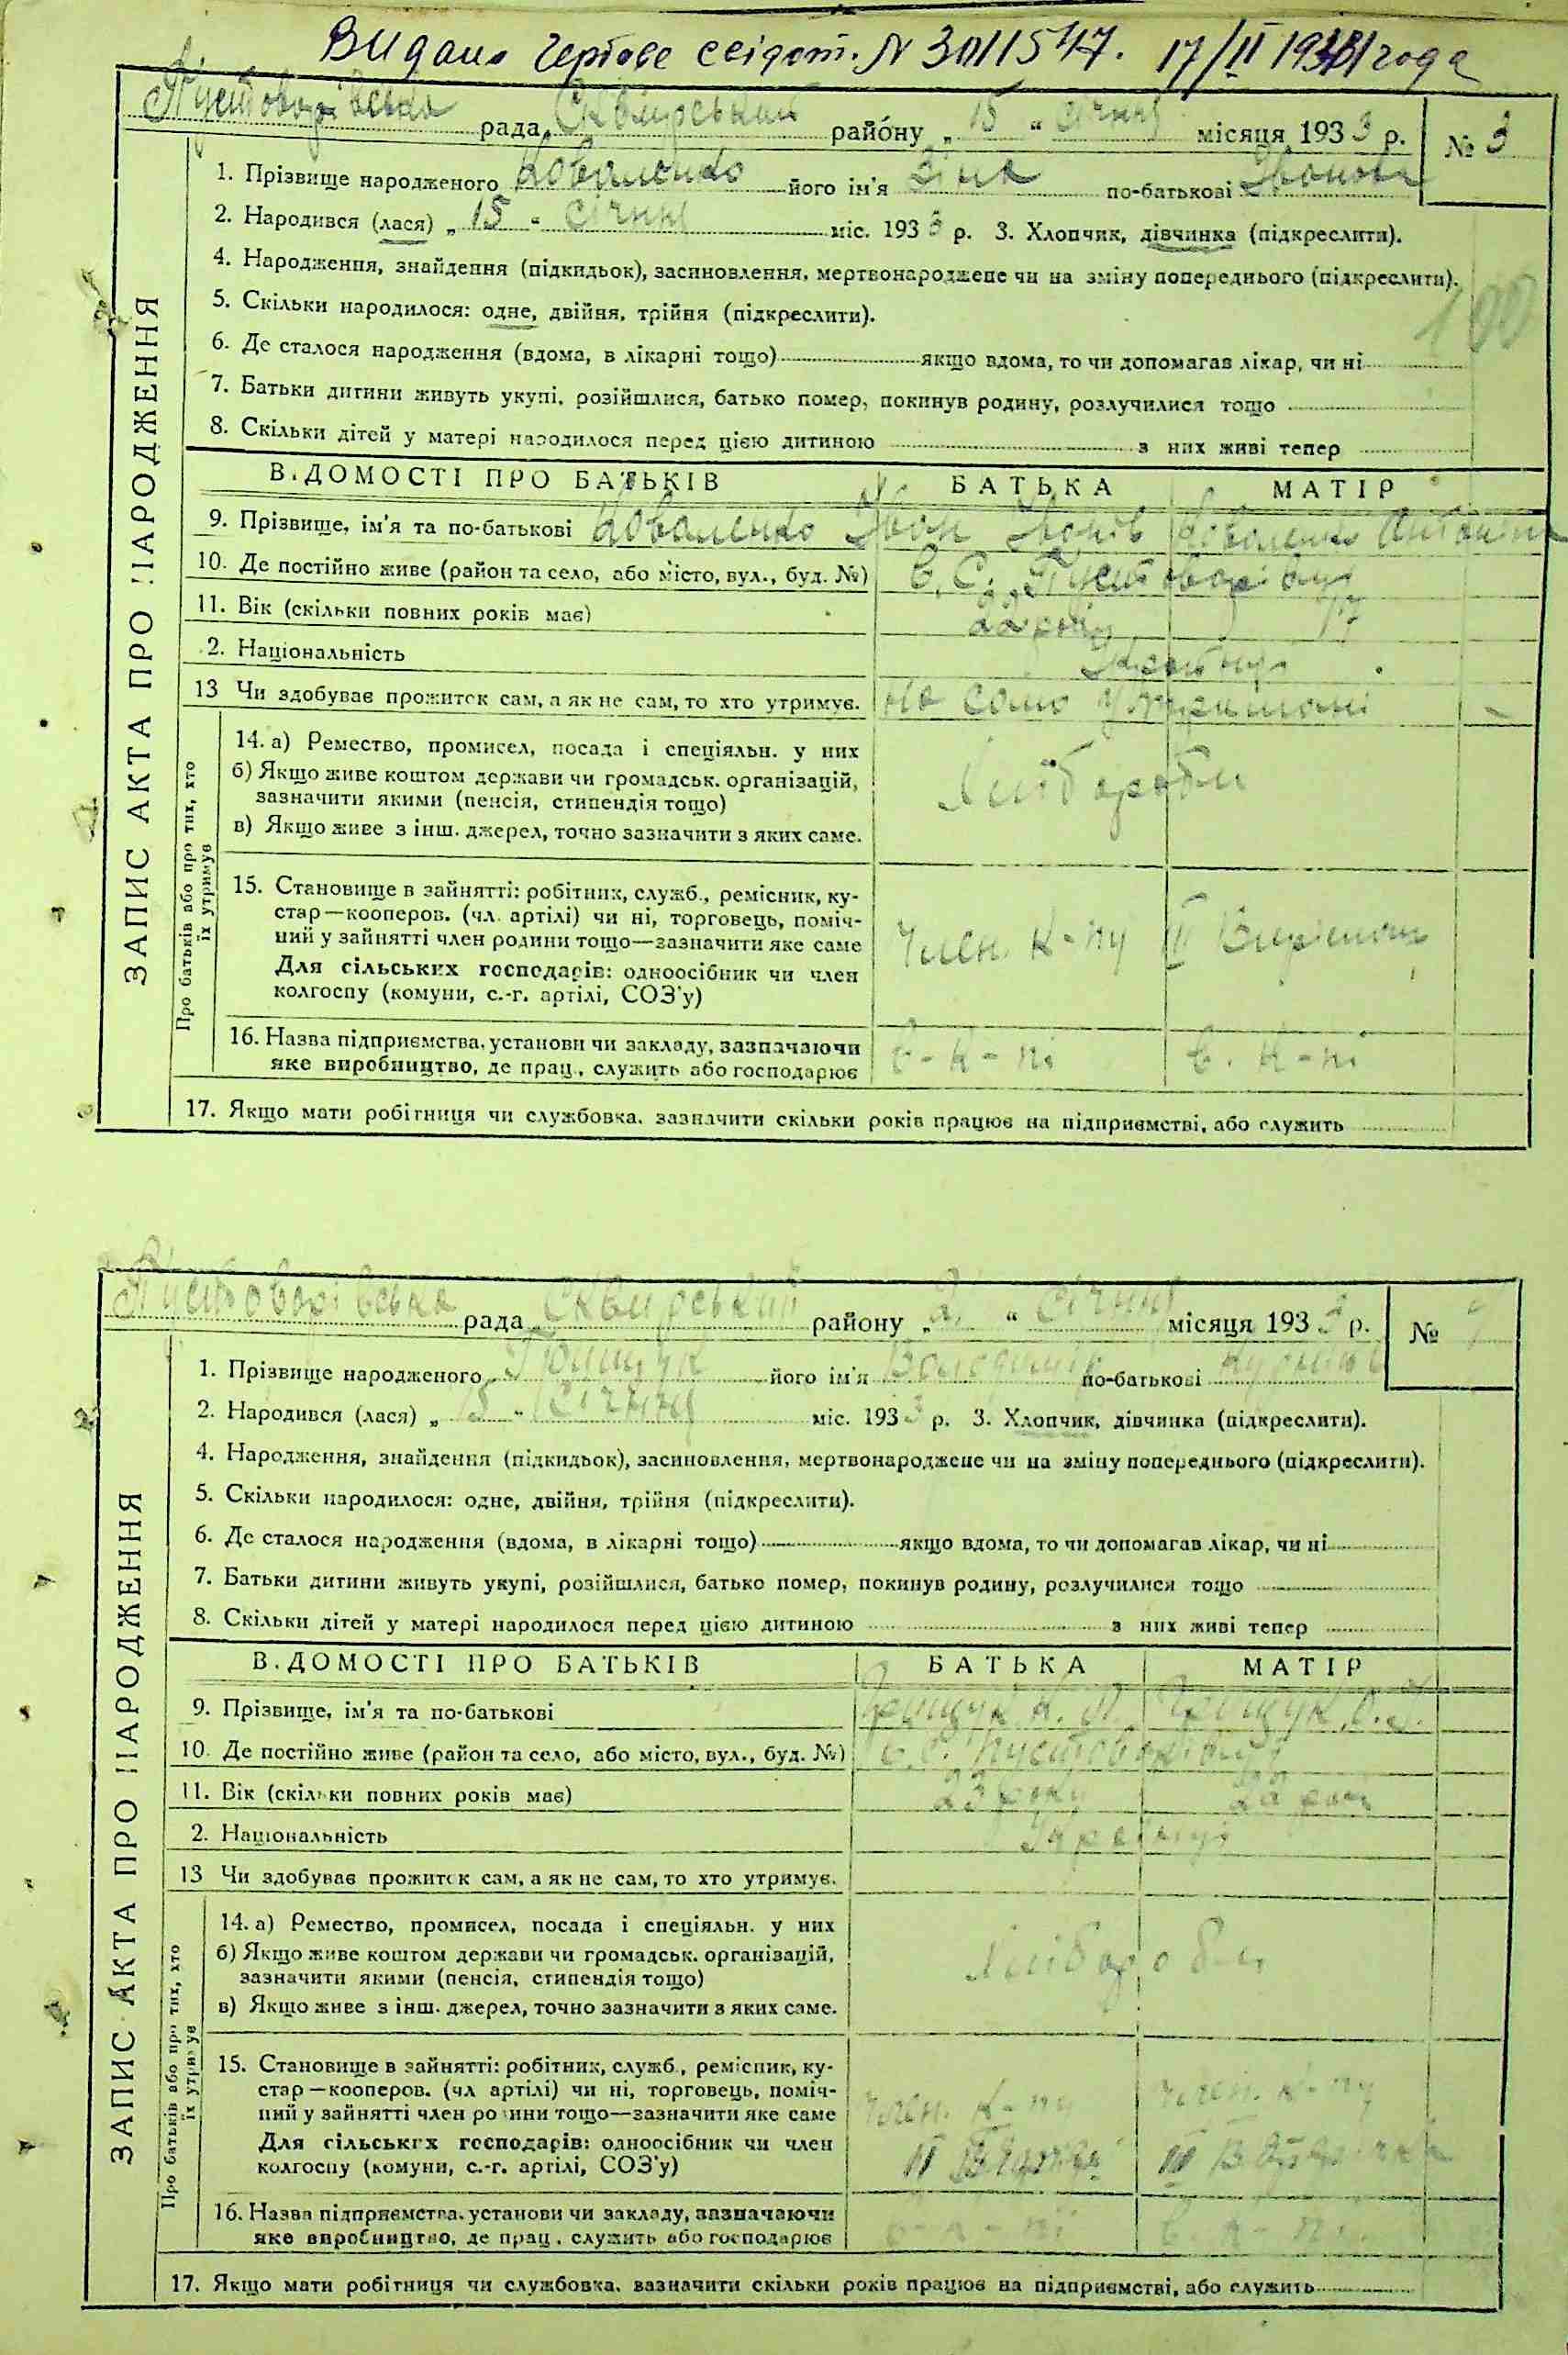 Видано чергове свідот. N 3011547. 17/II 1981 года
Пустоварівська рада „ Сквирський району „ 15 “ січня місяця 1933 р. № 3
1. Прізвище народженого Коваленко його ім'я Зіна по-батькові
2. Народився (лася) „ 15 “ січня міс. 1933 р. 3. Хлопчик, дівчинка (підкреслити).
4. Народження, знайдення (підкидьок), засиновлення, мертвонароджене чи на зміну попереднього (підкреслити).
5. Скільки народилося: одне, двійня, трійня (підкреслити).
100
6. Де сталося народження (вдома, в лікарні тощо) якщо вдома, то чи допомагав лікар, чи ні
7. Батьки дитини живуть укупі, розійшлися, батько помер, покинув родину, розлучилися тощо
8. Скільки дітей у матері народилося перед цією дитиною з них живі тепер
ЗАПИС АКТА ПРО НАРОДЖЕННЯ
ВІДОМОСТІ ПРО БАТЬКІВ БАТЬКА МАТІР
9. Прізвище, ім'я та по-батькові Коваленко Іван Коваленко
10. Де постійно живе (район та село, або місто, вул., буд. №) в. С. Пустоварівці
11. Вік (скільки повних років має) 22 року
2. Національність Українці
13 Чи здобуває прожиток сам, а як не сам, то хто утримує. На само утриманні
Про батьків або про тих, хто їх утримує
14. а) Ремество, промисел, посада і спеціяльн. у них
б) Якщо живе коштом держави чи громадськ. організацій,
зазначити якими (пенсія, стипендія тощо)
в) Якщо живе з інш. джерел, точно зазначити з яких саме.
Хлібороби
15. Становище в зайнятті: робітник, служб., ремісник, ку-
стар—кооперов. (чл. артілі) чи ні, торговець, поміч-
ний у зайнятті член родини тощо—зазначити яке саме
Для сільських господарів: одноосібник чи член
колгоспу (комуни, с.-г. артілі, СОЗ'у)
Член. к-пу
16. Назва підприємства, установи чи закладу, зазначаючи
яке виробництво, де прац., служить або господарює
в - к - пі в. к-пі
17. Якщо мати робітниця чи службовка, зазначити скільки років працює на підприємстві, або служить
Пустоварівська рада „ Сквирський району „ “ січня місяця 1933 р. №
1. Прізвище народженого Грищук його ім'я Володимир по-батькові
2. Народився (лася) „ 15 “ січня міс. 1933 р. 3. Хлопчик, дівчинка (підкреслити).
4. Народження, знайдення (підкидьок), засиновлення, мертвонароджене чи на зміну попереднього (підкреслити).
5. Скільки народилося: одне, двійня, трійня (підкреслити).
6. Де сталося народження (вдома, в лікарні тощо) якщо вдома, то чи допомагав лікар, чи ні
7. Батьки дитини живуть укупі, розійшлися, батько помер, покинув родину, розлучилися тощо
8. Скільки дітей у матері народилося перед цією дитиною з них живі тепер
ЗАПИС АКТА ПРО НАРОДЖЕННЯ
ВІДОМОСТІ ПРО БАТЬКІВ БАТЬКА МАТІР
9. Прізвище, ім'я та по-батькові Грищук К. Грищук
10. Де постійно живе (район та село, або місто, вул., буд. №) в с. Пустоварівці
11. Вік (скільки повних років має) 23 року 22 роки
2. Національність Українці
13 Чи здобуває прожиток сам, а як не сам, то хто утримує.
Про батьків або про тих, хто їх утримує
14. а) Ремество, промисел, посада і спеціяльн. у них
б) Якщо живе коштом держави чи громадськ. організацій,
зазначити якими (пенсія, стипендія тощо)
в) Якщо живе з інш. джерел, точно зазначити з яких саме.
Хлібороби
15. Становище в зайнятті: робітник, служб., ремісник, ку-
стар—кооперов. (чл артілі) чи ні, торговець, поміч-
ний у зайнятті член родини тощо—зазначити яке саме
Для сільських господарів: одноосібник чи член
колгоспу (комуни, с.-г. артілі, СОЗ'у)
Член. к-пу Член. к-пу
16. Назва підприємства, установи чи закладу, зазначаючи
яке виробництво, де прац., служить або господарює
в - к - пі в. к - пі
17. Якщо мати робітниця чи службовка, зазначити скільки років працює на підприємстві, або служить